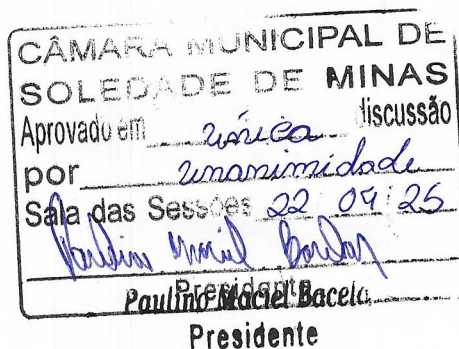 CÂMARA MUNICIPAL DE
SOLEDADE DE MINAS
Aprovado em única discussão
por unanimidade
Sala das Sessões 22 04 25
Presidente
Paulino Maciel Bacela
Presidente